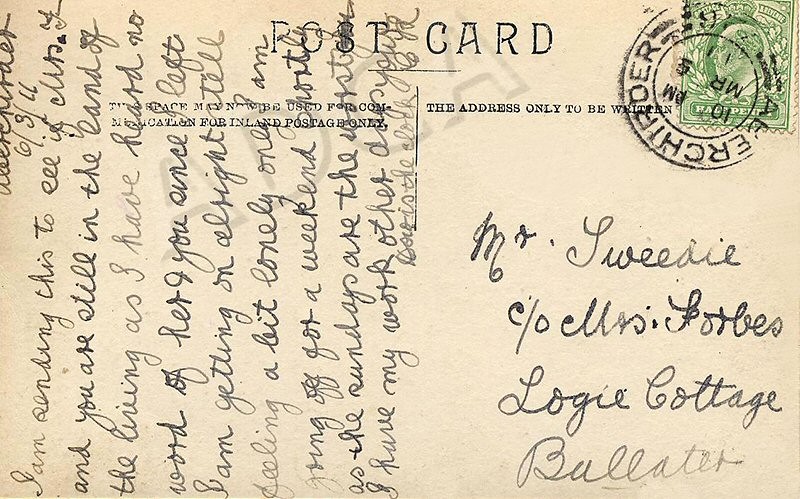 POST CARD
THIS SPACE MAY NOW BE USED FOR COM-
MUNICATION FOR INLAND POSTAGE ONLY.
THE ADDRESS ONLY TO BE WRITTEN
ABERCHIRDER
10 AM
MR
11
HALFPENNY
Aberchirder
6/3/11
I am sending this to see if Mrs. F
and you are still in the land of
the living as I have heard no
word of her & you since I left
I am getting on alright tell
feeling a bit lonely only I am
going off for a weekend shortly
as the sundays are the worst for
I have my work other days
how is the
Mr. Tweedie
c/o Mrs. Forbes
Logie Cottage
Ballater